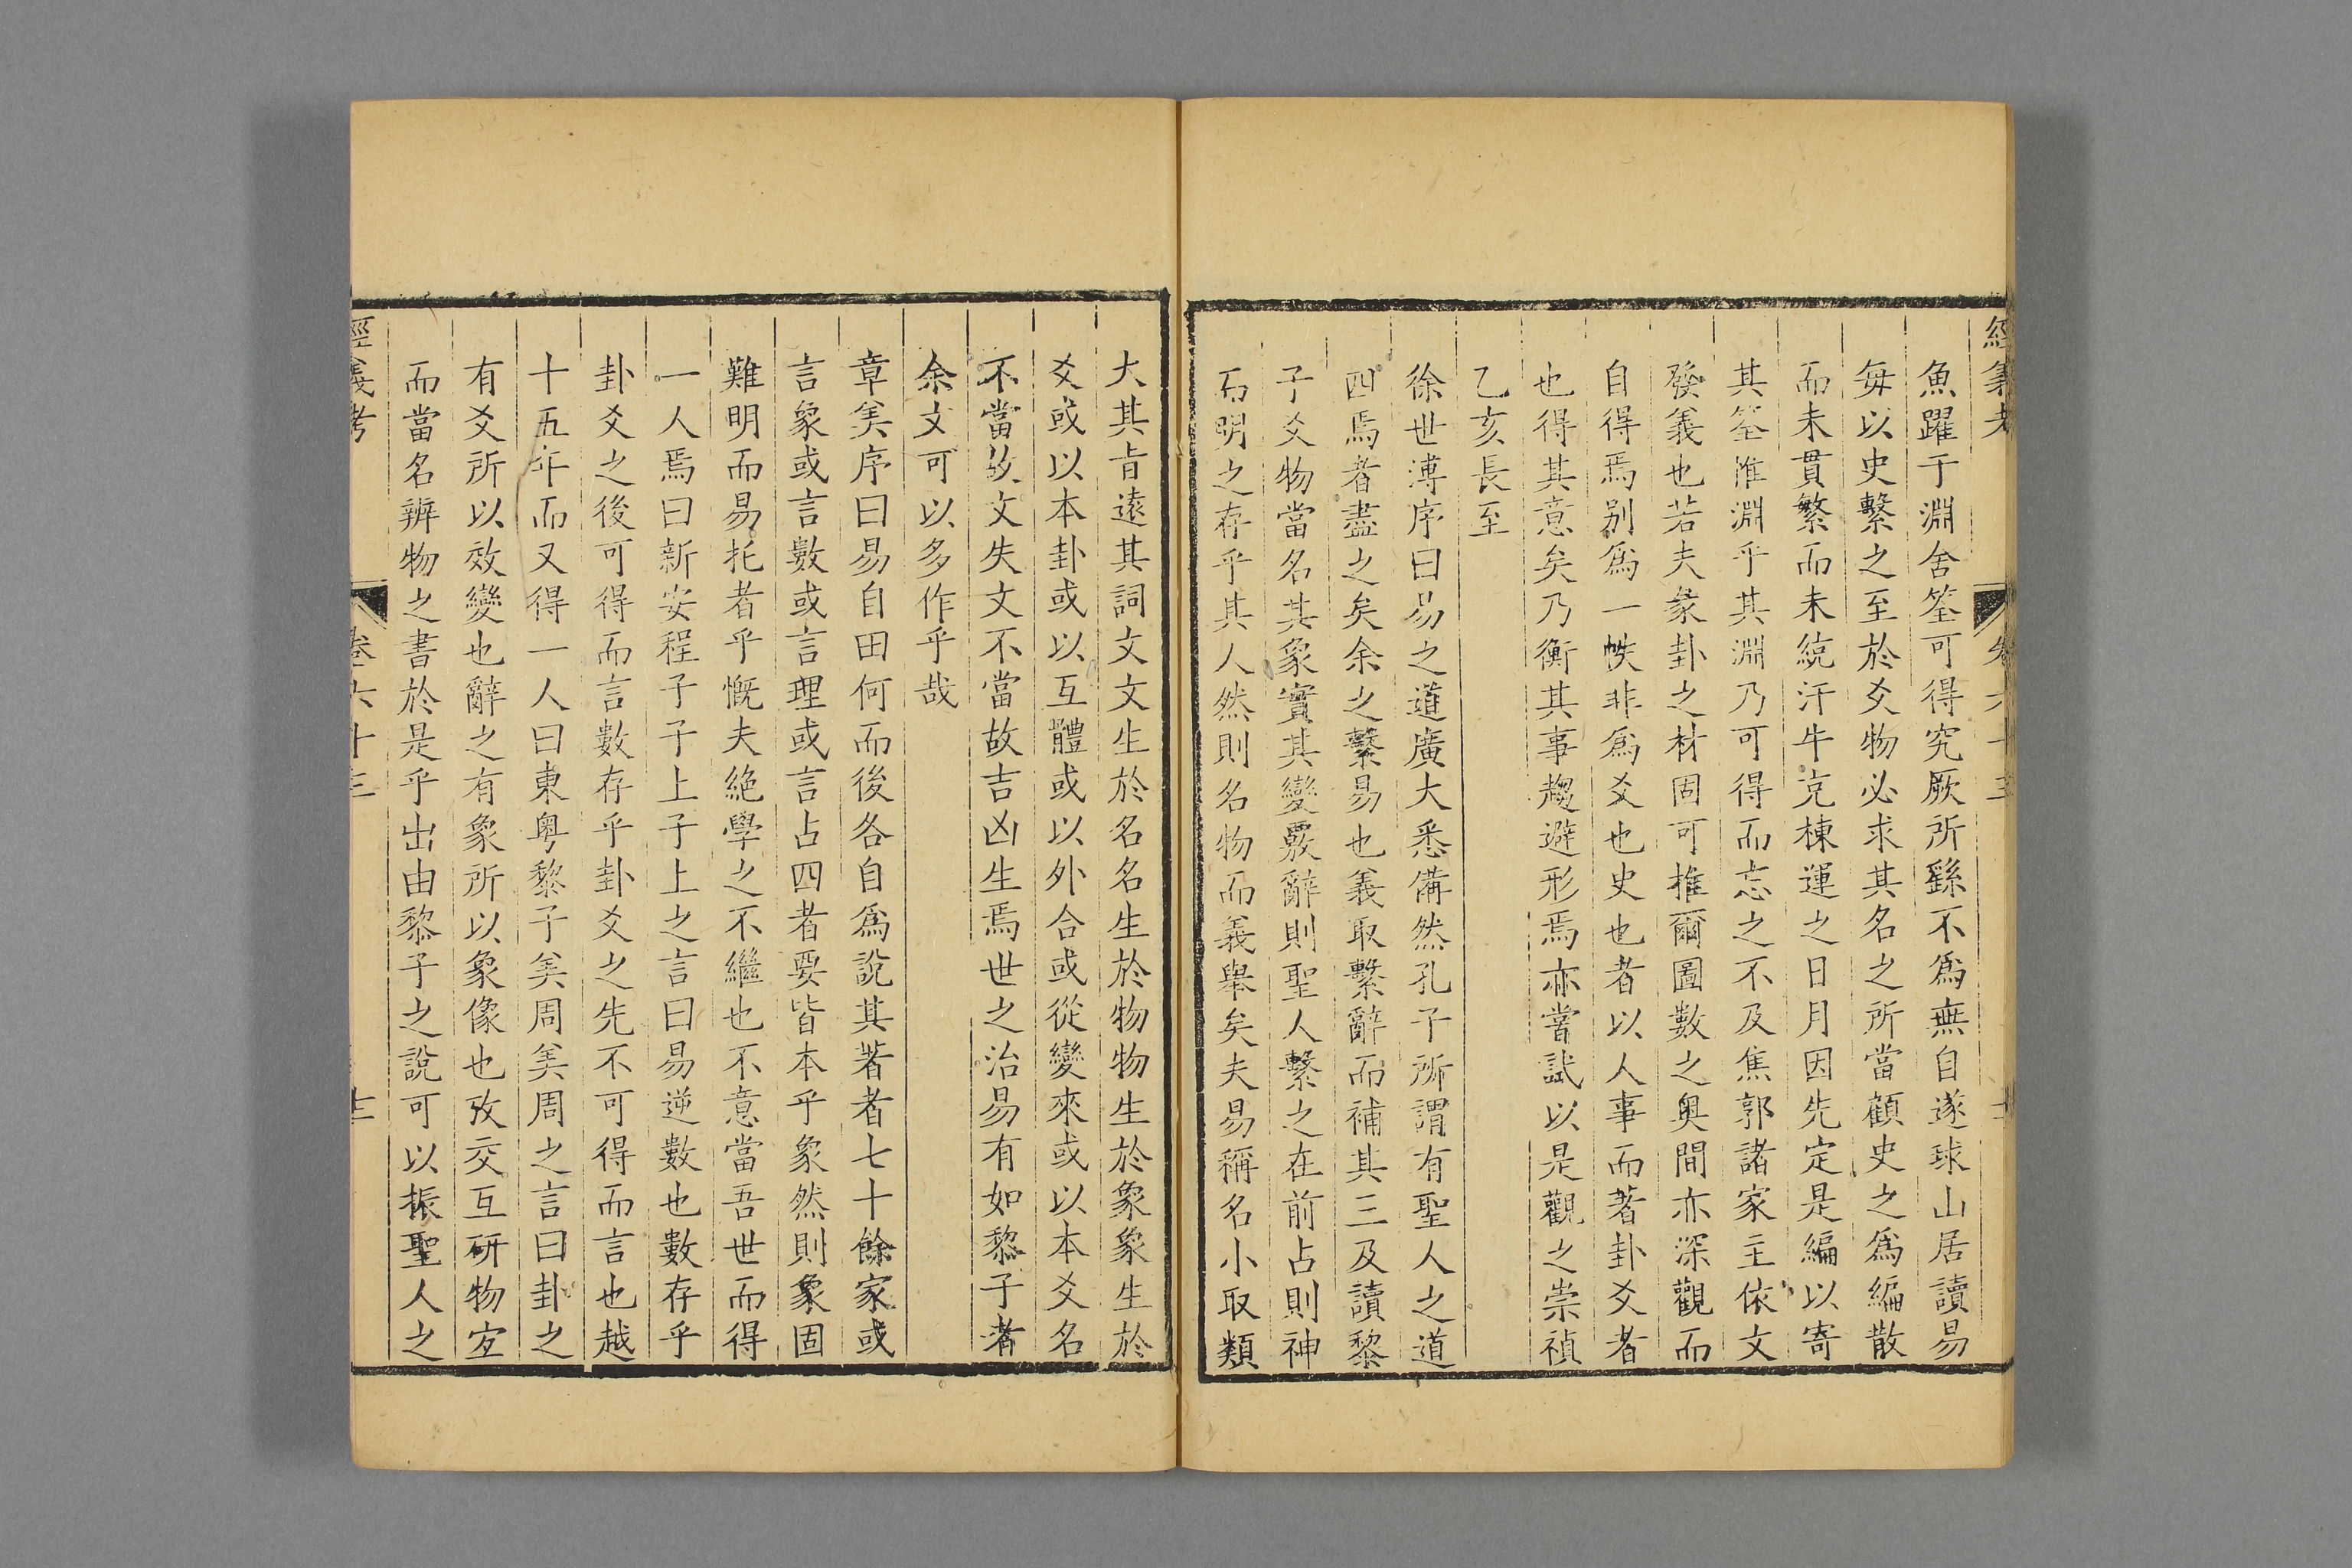 經義考
卷六十三
魚躍于淵舍筌可得究厥所繇不爲無自遂球山居讀易
每以史繫之至於爻物必求其名之所當顧史之爲編散
而未貫繁而未統汗牛克棟運之日月因先定是編以寄
其筌惟淵乎其淵乃可得而忘之不及焦郭諸家主依文
發義也若夫彖卦之材固可推爾圖數之奥間亦深觀而
自得焉别爲一帙非爲爻也史也者以人事而著卦爻者
也得其意矣乃衡其事趨避形焉亦嘗試以是觀之崇禎
乙亥長至
徐世溥序曰易之道廣大悉備然孔子所謂有聖人之道
四焉者盡之矣余之繫易也義取繫辭而補其三及讀黎
子爻物當名其象實其變覈辭則聖人繫之在前占則神
而明之存乎其人然則名物而義舉矣夫易稱名小取類
大其㫖逺其詞文文生於名名生於物物生於象象生於
爻或以本卦或以互體或以外合或從變來或以本爻名
不當故文失文不當故吉凶生焉世之治易有如黎子者
余文可以多作乎哉
章美序曰易自田何而後各自爲說其著者七十餘家或
言象或言數或言理或言占四者要皆本乎象然則象固
難明而易托者乎慨夫絶學之不繼也不意當吾世而得
一人焉曰新安程子子上子上之言曰易逆數也數存乎
卦爻之後可得而言數存乎卦爻之先不可得而言也越
十五年而又得一人曰東粤黎子美周美周之言曰卦之
有爻所以效變也辭之有象所以象像也攷交互研物宐
而當名辨物之書於是乎出由黎子之說可以振聖人之
經義考
卷六十三